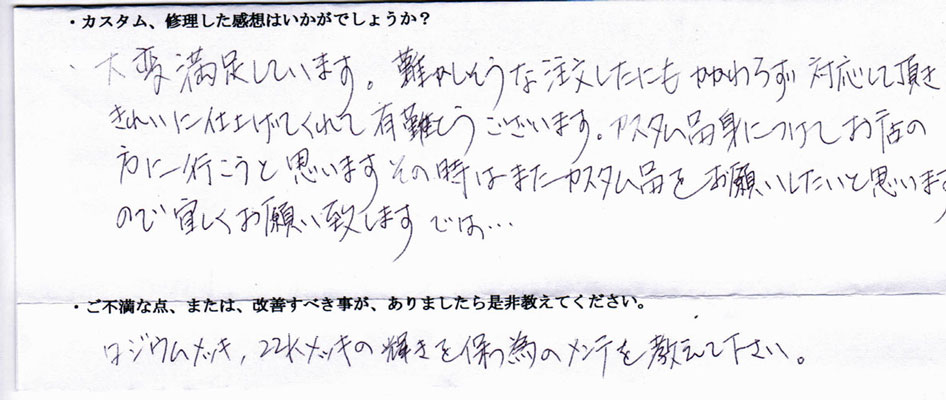 ・カスタム、修理した感想はいかがでしょうか？
大変満足しています。難かしそうな注文したにもかかわらず対応して頂き
きれいに仕上げてくれて有難とうございます。カスタム品身につけてお店の
方に行こうと思いますその時はまたカスタム品をお願いしたいと思います
ので宜しくお願い致しますでは…
・ご不満な点、または、改善すべき事が、ありましたら是非教えてください。
ロジウムメッキ，22Kメッキの輝きを保つ為のメンテを教えて下さい。